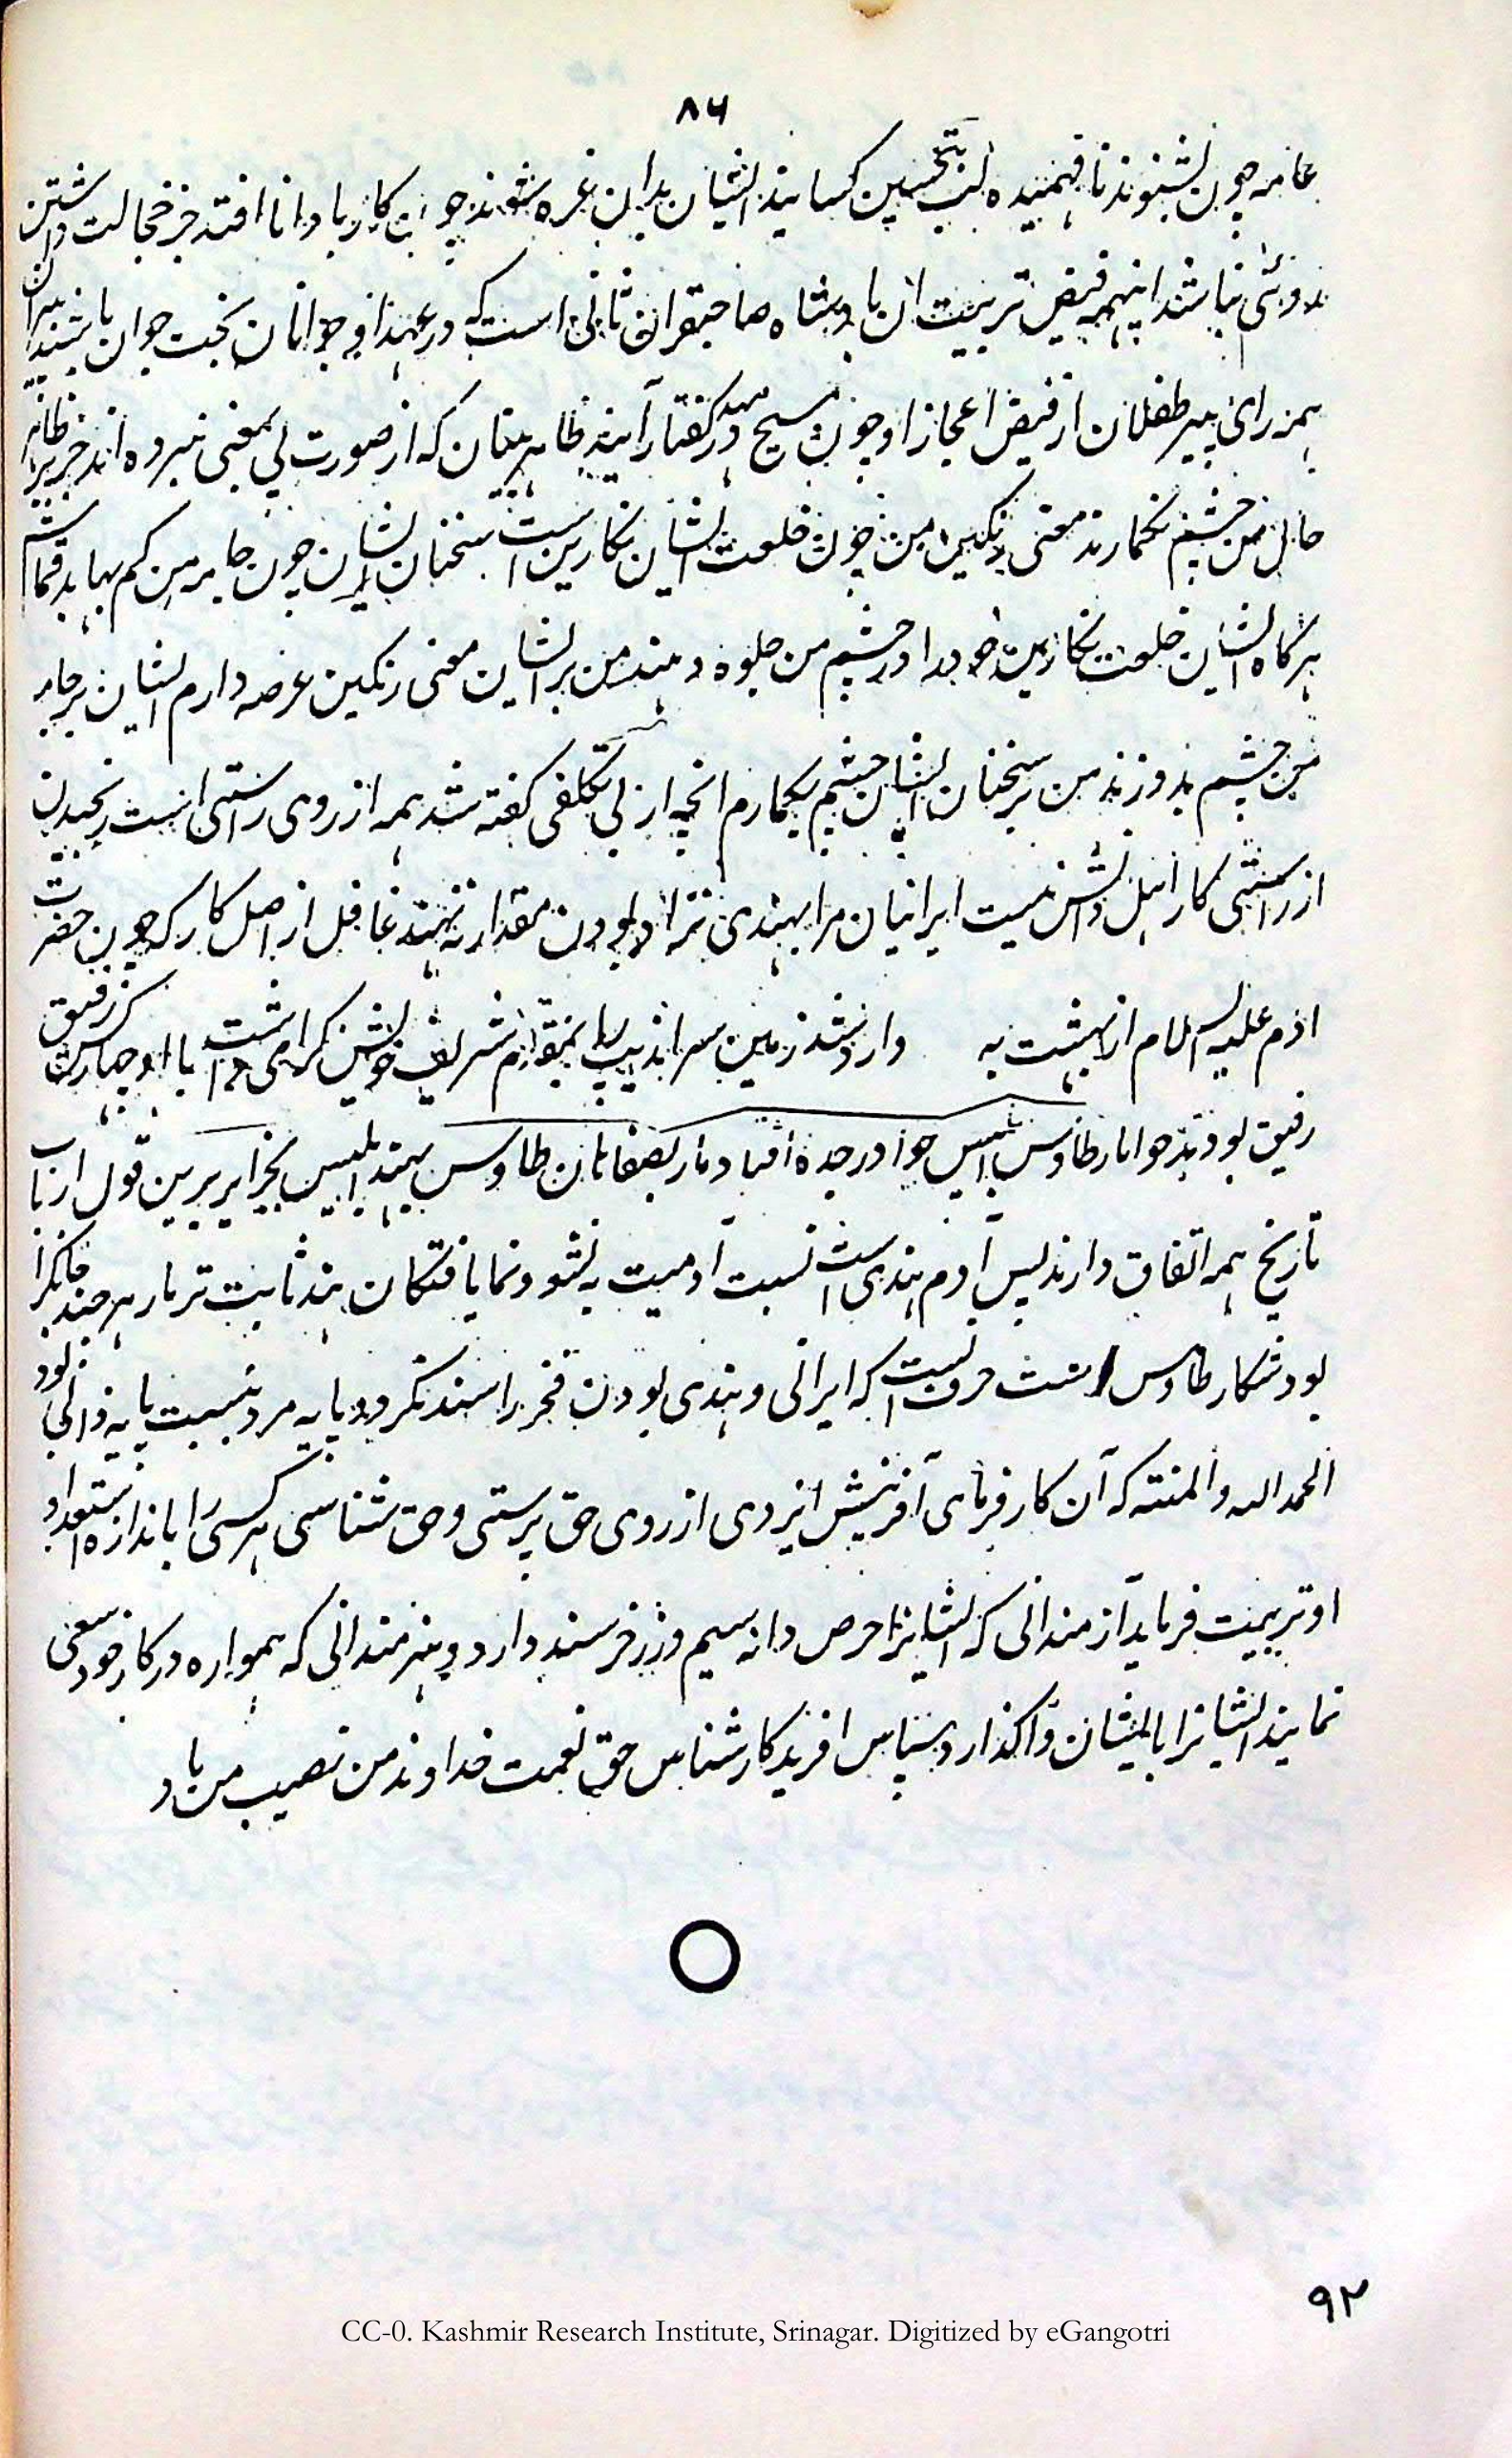 ۸۶
عامه چون بشنوند نافهمیده لب بتحسین کسایند ایشان بدین غره شوند چون کار با دانا افتد جز خجالت داشتن
روئی نباشد اینهمه فیض تربیت ان بادشاه صاحبقران ثانی است که در عهد او جوانان بخت جوان باشند پیران
همزرای پیر طفلان از فیض اعجاز او چون مسیح در مهد گفتار آیند ظاهر بینان که از صورت پی بمعنی نبرده اند جز بر ظاهر
حال من چشم نگمارند معنی رنگین من چون خلعت ایشان نگارین است سخنان ایشان چون جامه من کم بها بد قماش
هرگاه ایشان خلعت نگارین خود را در چشم من جلوه دهند من بر ایشان معنی رنگین عرضه دارم ایشان بر جامه
من چشم بدوزند من بر سخنان ایشان چشم بگمارم انچه از بی تکلفی گفته شد همه از روی راستی است رنجیدن
از راستی کار اهل دانش نیست ایرانیان مرا بهندی نژاد بودن مقدار ننهند غافل از اصل کار که چون حضرت
ادم علیه السلام از بهشت به وارد شد زمین سراندیب را بمقدم شریف خویش گرامی داشت با او چهار کس رفیق
رفیق بودند حوا مار طاوس ابلیس حوا در جده افتاد مار بصفاهان طاوس بهند ابلیس بجزایر برین قول ارباب
تاریخ همه اتفاق دارند پس آدم هندی است نسبت آدمیت به نشو و نما یافتگان هند ثابت تر مار هر چند
بود شکار طاوس است حرفیست که ایرانی و هندی بودن فخر را سند نگردد پایه مرد بنسبت پایه ذاتی بود
الحمد الله والمنته که آن کارفرمای آفرینش ایزدی از روی حق پرستی و حق شناسی هر کسی را باندازه استعداد
او تربیت فرماید آزمندانی که ایشانرا حرص دانه سیم و زر خرسند دارد و هنرمندانی که همواره در کار خود سعی
نمایند ایشانرا بایشان واگذارد سپاس افریدکار شناس حق نعمت خداوند من نصیب من باد
۹۲
CC-0. Kashmir Research Institute, Srinagar. Digitized by eGangotri